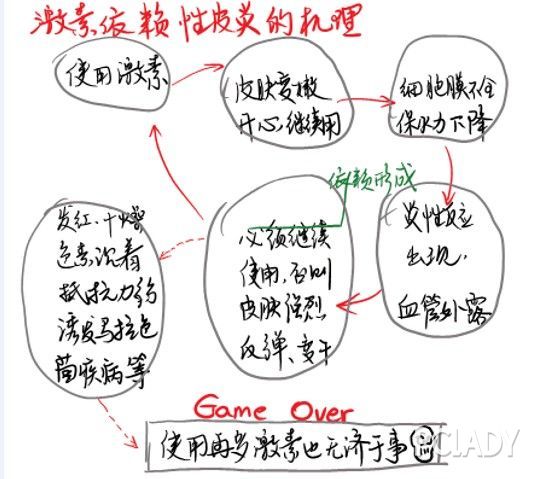 激素依赖性皮炎的机理
使用激素
皮肤变嫩
开心,继续用
细胞膜不全
保水力下降
依赖形成
炎性反应
出现,
血管外露
必须继续
使用,否则
皮肤强烈
反弹、变干
发红、干燥
色素沉着
抵抗力弱
诱发马拉色
菌疾病等
Game Over
使用再多激素也无济于事
PCLADY